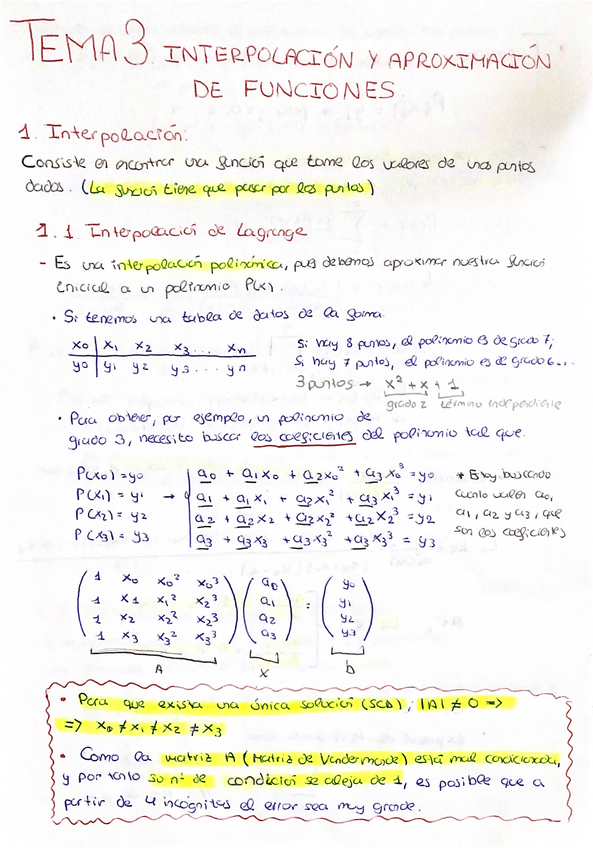 TEMA 3. INTERPOLACIÓN Y APROXIMACIÓN
DE FUNCIONES.
1. Interpolación:
Consiste en encontrar una función que tome los valores de unos puntos
dados. (La función tiene que pasar por los puntos)
1.1. Interpolación de Lagrange
- Es una interpolación polinómica, pues debemos aproximar nuestra función
inicial a un polinomio P(x).
• Si tenemos una tabla de datos de la forma:
x0 | x1 x2 x3 ... xn
y0 | y1 y2 y3 ... yn
Si hay 8 puntos, el polinomio es de grado 7;
Si hay 7 puntos, el polinomio es de grado 6...
3 puntos → x² + x + 1
grado 2 término independiente
• Para obtener, por ejemplo, un polinomio de
grado 3, necesito buscar los coeficientes del polinomio tal que:
P(x0) = y0 a0 + a1x0 + a2x0² + a3x0³ = y0
P(x1) = y1 → a1 + a1x1 + a2x1² + a3x1³ = y1
P(x2) = y2 a2 + a2x2 + a2x2² + a2x2³ = y2
P(x3) = y3 a3 + a3x3 + a3x3² + a3x3³ = y3
* Estoy buscando
cuánto valen a0,
a1, a2 y a3, que
son los coeficientes
1 x0 x0² x0³ a0 y0
1 x1 x1² x2³ a1 = y1
1 x2 x2² x2³ a2 y2
1 x3 x3² x3³ a3 y3
A x b
• Para que exista una única solución (SCD), |A| ≠ 0 =>
=> x0 ≠ x1 ≠ x2 ≠ x3
• Como la matriz A (Matriz de Vandermonde) está mal condicionada,
y por tanto su nº de condición se aleja de 1, es posible que a
partir de 4 incógnitas el error sea muy grande.